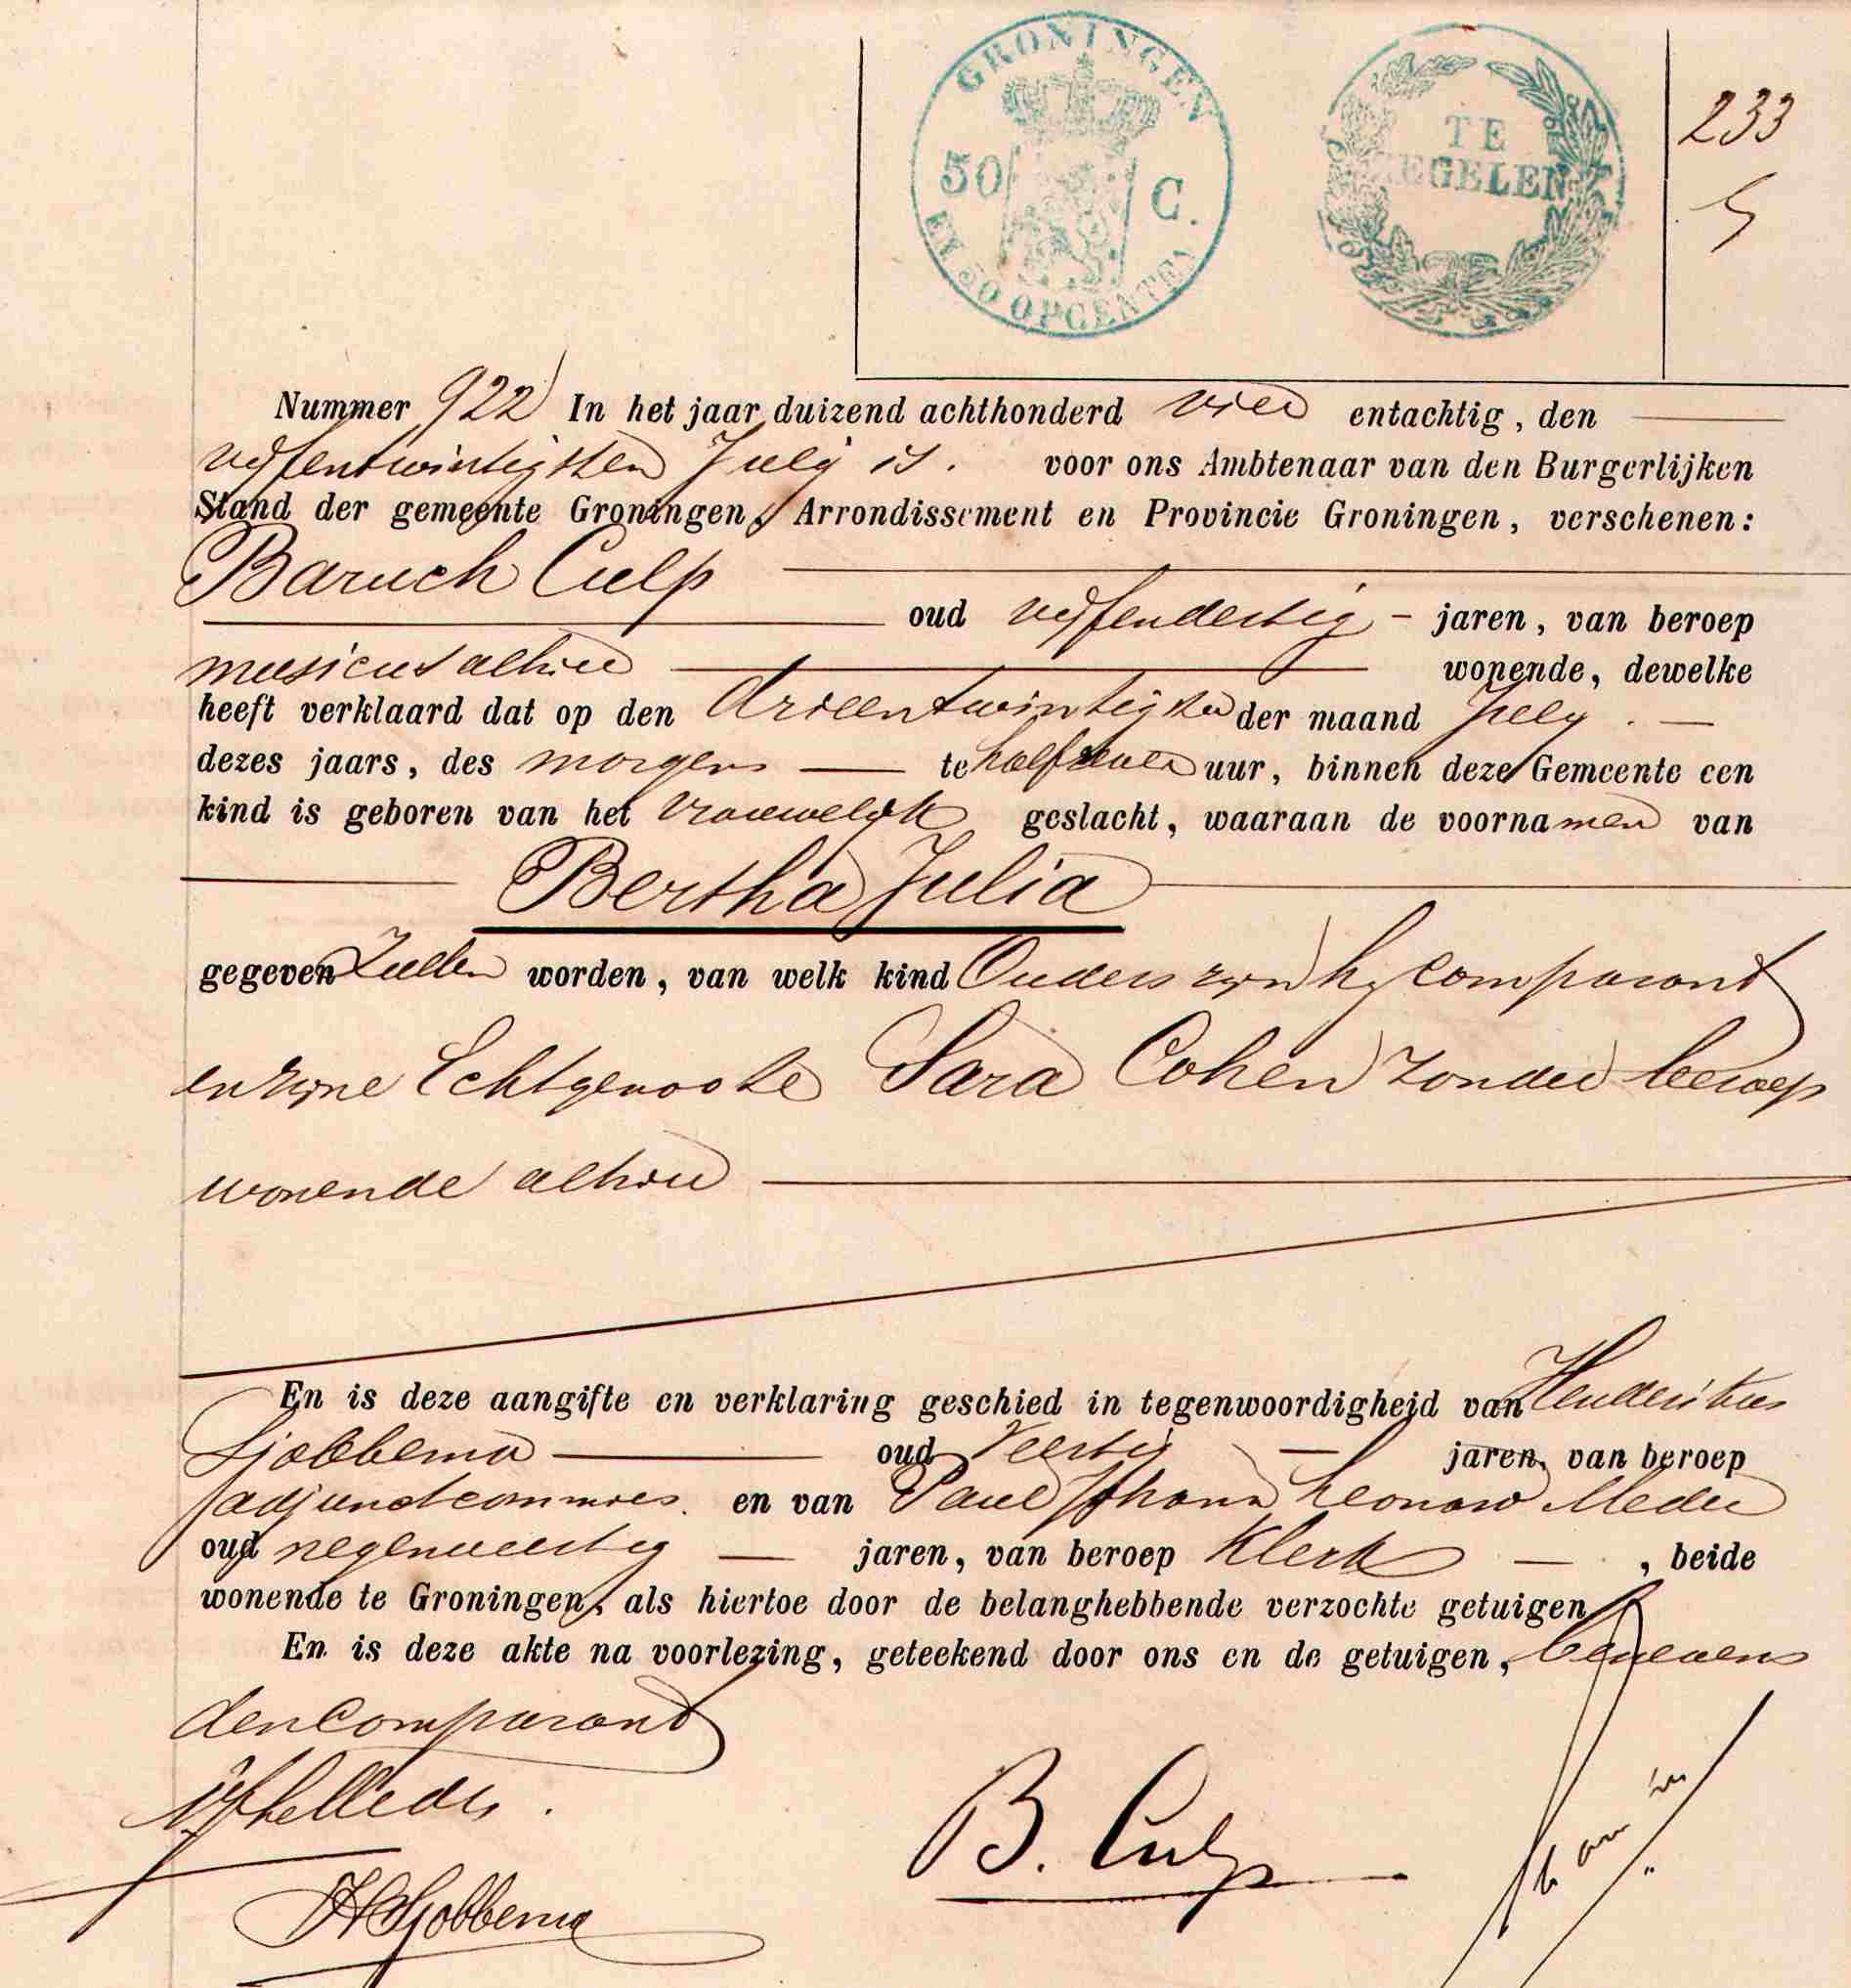 GRONINGEN
50 C.
EN 50 OPCENTEN
TE
ZEGELEN
233
Nummer 922 In het jaar duizend achthonderd vier entachtig, den
vyfentwintigsten July is. voor ons Ambtenaar van den Burgerlijken
Stand der gemeente Groningen, Arrondissement en Provincie Groningen, verschenen:
Baruch Culp
oud vyfendertig - jaren, van beroep
musicus alhier wonende, dewelke
heeft verklaard dat op den drieentwintigsten der maand July.
dezes jaars, des morgens te half zeven uur, binnen deze Gemeente een
kind is geboren van het vrouwelyk geslacht, waaraan de voornamen van
Bertha Julia
gegeven zullen worden, van welk kind Ouders zyn hy comparant
en zyne Echtgenoote Sara Cohen zonder beroep
wonende alhier
En is deze aangifte en verklaring geschied in tegenwoordigheid van Hendericus
Sjobbema oud Veertig jaren, van beroep
adjunctcommies. en van Paul Johann Leonard Meder
oud negenveertig jaren, van beroep Klerk, beide
wonende te Groningen, als hiertoe door de belanghebbende verzochte getuigen
En is deze akte na voorlezing, geteekend door ons en de getuigen, benevens
den comparant
B. Culp
HSjobbema